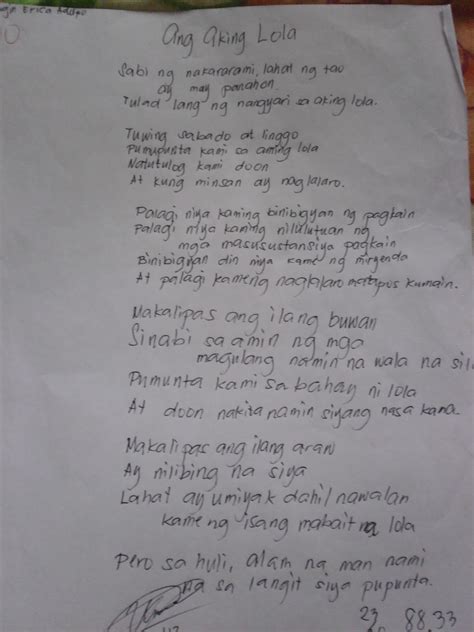 Erica
Ang aking Lola
Sabi ng nakararami, lahat ng tao
ay may panahon
Tulad lang ng nangyari sa aking lola.
Tuwing sabado at linggo
Pumupunta kami sa aming lola
Natutulog kami doon
At kung minsan ay naglalaro.
Palagi niya kaming binibigyan ng pagkain
Palagi niya kaming nilulutuan ng
mga masusustansiya pagkain
Binibigyan din niya kame ng miryenda
At palagi kameng naglalaro matapos kumain.
Makalipas ang ilang buwan
Sinabi sa amin ng mga
magulang namin na wala na
Pumunta kami sa bahay ni lola
At doon nakita namin siyang nasa kama.
Makalipas ang ilang araw
Ay nilibing na siya
Lahat ay umiyak dahil nawalan
kame ng isang mabait na lola
Pero sa huli, alam na man nami
na sa langit siya pupunta.
23 88.33